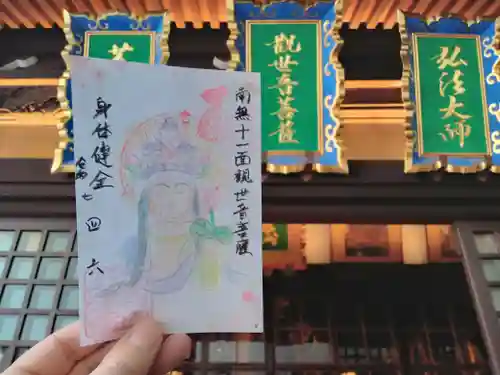 觀世音菩薩
弘法大師
南無十一面観世音菩薩
身体健全
令和七 四 六